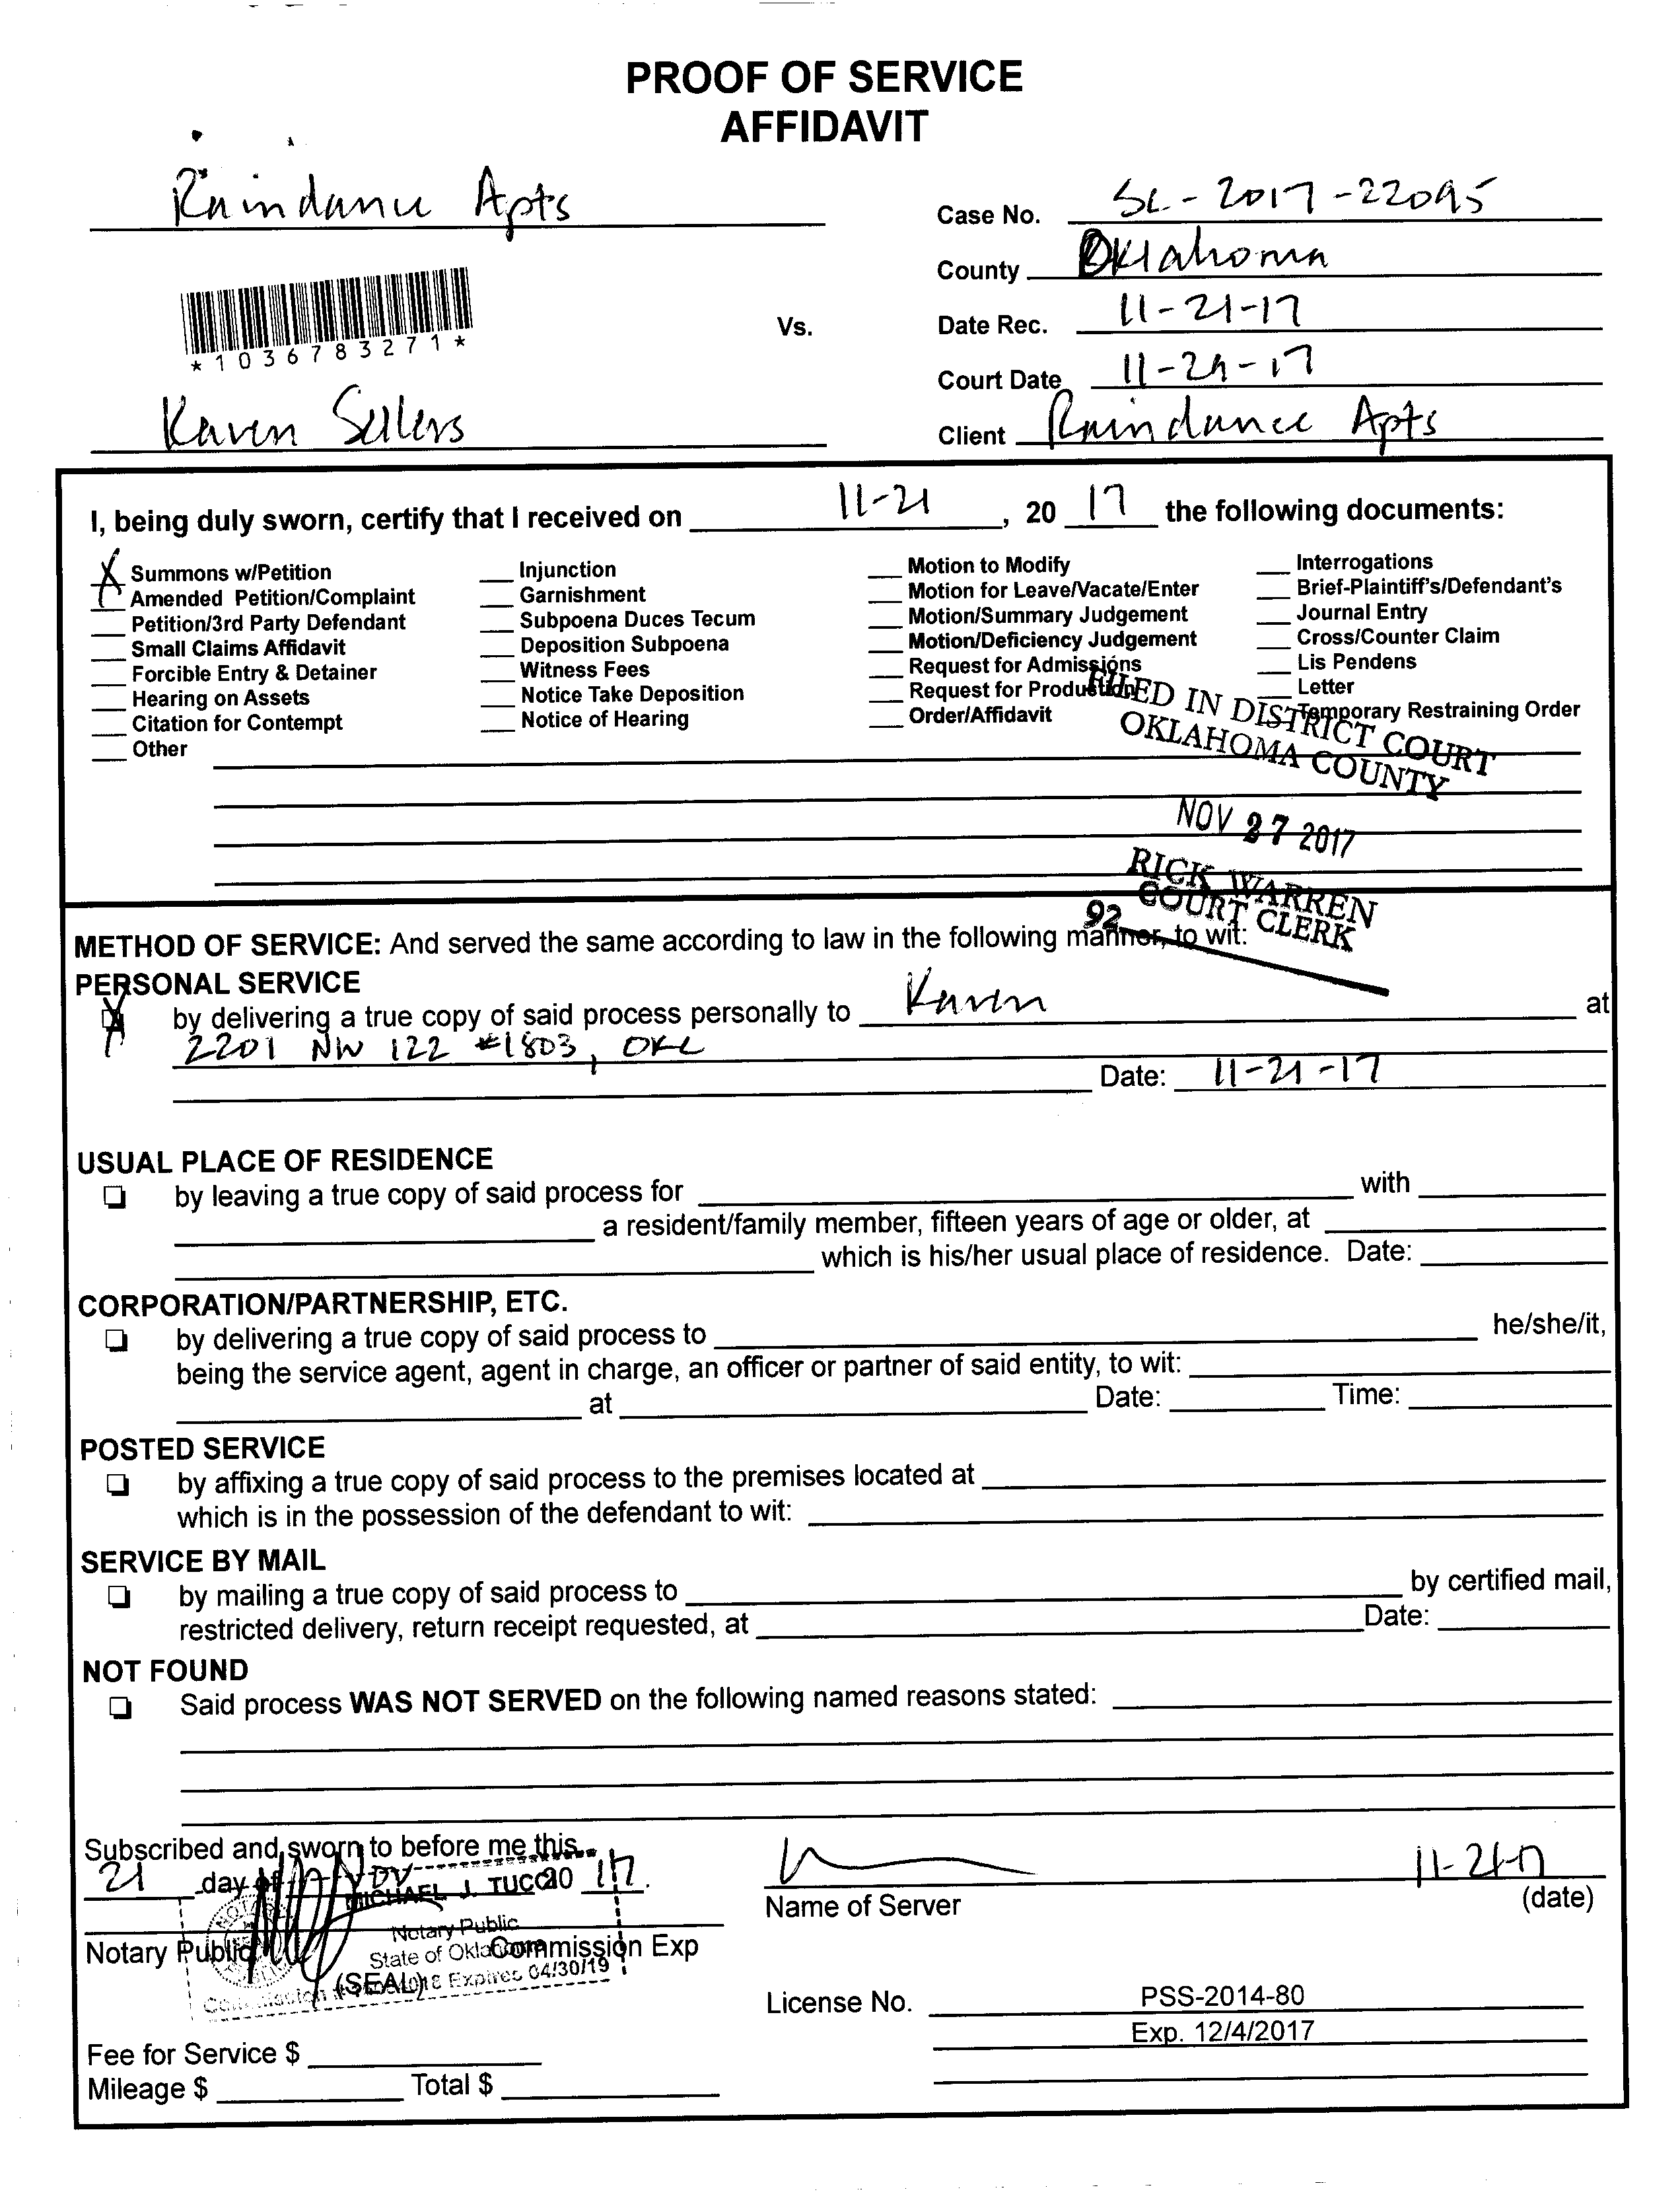 PROOF OF SERVICE
AFFIDAVIT
Raindance Apts
Case No. SC-2017-22095
County Oklahoma
*1036783271*
Vs.
Date Rec. 11-21-17
Court Date 11-29-17
Karen Sellers
Client Raindance Apts
I, being duly sworn, certify that I received on 11-21, 20 17 the following documents:
X Summons w/Petition
__ Amended Petition/Complaint
__ Petition/3rd Party Defendant
__ Small Claims Affidavit
__ Forcible Entry & Detainer
__ Hearing on Assets
__ Citation for Contempt
__ Other
__ Injunction
__ Garnishment
__ Subpoena Duces Tecum
__ Deposition Subpoena
__ Witness Fees
__ Notice Take Deposition
__ Notice of Hearing
__ Motion to Modify
__ Motion for Leave/Vacate/Enter
__ Motion/Summary Judgement
__ Motion/Deficiency Judgement
__ Request for Admissions
__ Request for Production
__ Order/Affidavit
__ Interrogations
__ Brief-Plaintiff's/Defendant's
__ Journal Entry
__ Cross/Counter Claim
__ Lis Pendens
__ Letter
__ Temporary Restraining Order
FILED IN DISTRICT COURT
OKLAHOMA COUNTY
NOV 27 2017
RICK WARREN
COURT CLERK
92
METHOD OF SERVICE: And served the same according to law in the following manner, to wit:
PERSONAL SERVICE
X by delivering a true copy of said process personally to Karen at
2201 NW 122 #1803, OKC
Date: 11-21-17
USUAL PLACE OF RESIDENCE
by leaving a true copy of said process for ____ with ____
____ a resident/family member, fifteen years of age or older, at ____
____ which is his/her usual place of residence. Date: ____
CORPORATION/PARTNERSHIP, ETC.
by delivering a true copy of said process to ____ he/she/it,
being the service agent, agent in charge, an officer or partner of said entity, to wit: ____
____ at ____ Date: ____ Time: ____
POSTED SERVICE
by affixing a true copy of said process to the premises located at ____
which is in the possession of the defendant to wit: ____
SERVICE BY MAIL
by mailing a true copy of said process to ____ by certified mail,
restricted delivery, return receipt requested, at ____ Date: ____
NOT FOUND
Said process WAS NOT SERVED on the following named reasons stated: ____
Subscribed and sworn to before me this
21 day of Nov 20 17.
MICHAEL J. TUCCI
Notary Public
State of Oklahoma
Expires 04/30/19
Notary Public Commission Exp
(SEAL)
11-21-17
Name of Server (date)
License No. PSS-2014-80
Exp. 12/4/2017
Fee for Service $ ____
Mileage $ ____ Total $ ____